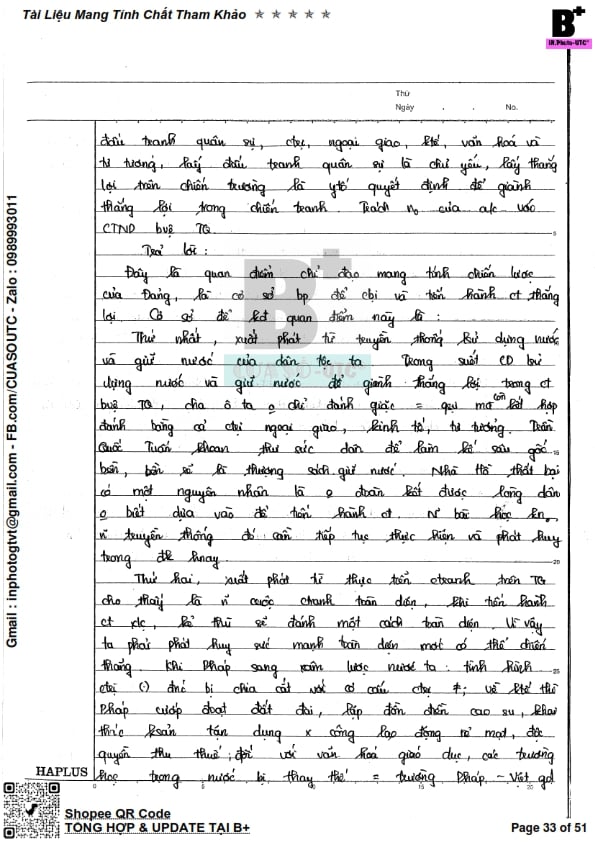 Tài Liệu Mang Tính Chất Tham Khảo ★ ★ ★ ★ ★
B+
IN.Photo-UTC*
Thứ
Ngày . . No.
đấu tranh quân sự, ctrị, ngoại giao, ktế, văn hoá và
tư tương, lấy đấu tranh quân sự là chủ yếu, lấy thắng
lợi trên chiến trường là ytố quyết định để giành
thắng lợi trong chiến tranh. Trách no của a/c với
CTND bvệ TQ
Trả lời:
Đây là quan điểm chỉ đạo mang tính chiến lược
của Đảng, là cơ sở bp để cbị và tiến hành ct thắng
lợi Cơ sở để quan điểm này là :
Thứ nhất, xuất phát từ truyền thống dựng nước
và giữ nước của dân tộc ta Trong suốt CD
dựng nước và giữ nước để giành thắng lợi trong ct
bvệ TQ, cha ô ta o chỉ đánh giặc = qsự mà còn kết hợp
đánh bằng cả ctrị ngoại giao, kinh tế, tư tưởng. Trần
Quốc Tuấn khoan thư sức dân để làm kế sâu gốc
bền, bền rễ là thượng sách giữ nước. Nhà Hồ thất bại
có một nguyên nhân là o đoàn kết được lòng dân
o biết dựa vào để tiến hành ct. bài học
truyền thống đó cần tiếp tục thực hiện và phát huy
trong đk hnay.
Thứ hai, xuất phát từ thực tiễn ctranh trên TG
cho thấy là cuộc ctranh toàn diện, khi tiến hành
ct xlc, kẻ thù sẽ đánh một cách toàn diện. Vì vậy
ta phải phát huy sức mạnh toàn diện mới có thể chiến
thắng. Khi Pháp sang xâm lược nước ta : tình hình
ctrị () đnc bị chia cắt với cơ cấu ctrị ≠; về ktế thì
Pháp cướp đoạt đất đai, lập đồn điền cao su, khai
thác ksản tận dụng x công lao động rẻ mạt, độc
quyền thu thuế; đối với văn hoá giáo dục, các trường
học trong nước bị thay thế = trường Pháp - Việt
5
15
20
25
0 5 10 15 20
CUASO-UTC
Gmail : inphotogtvt@gmail.com - FB.com/CUASOUTC - Zalo : 0989993011
HAPLUS
Shopee QR Code
TỔNG HỢP & UPDATE TẠI B+
Page 33 of 51